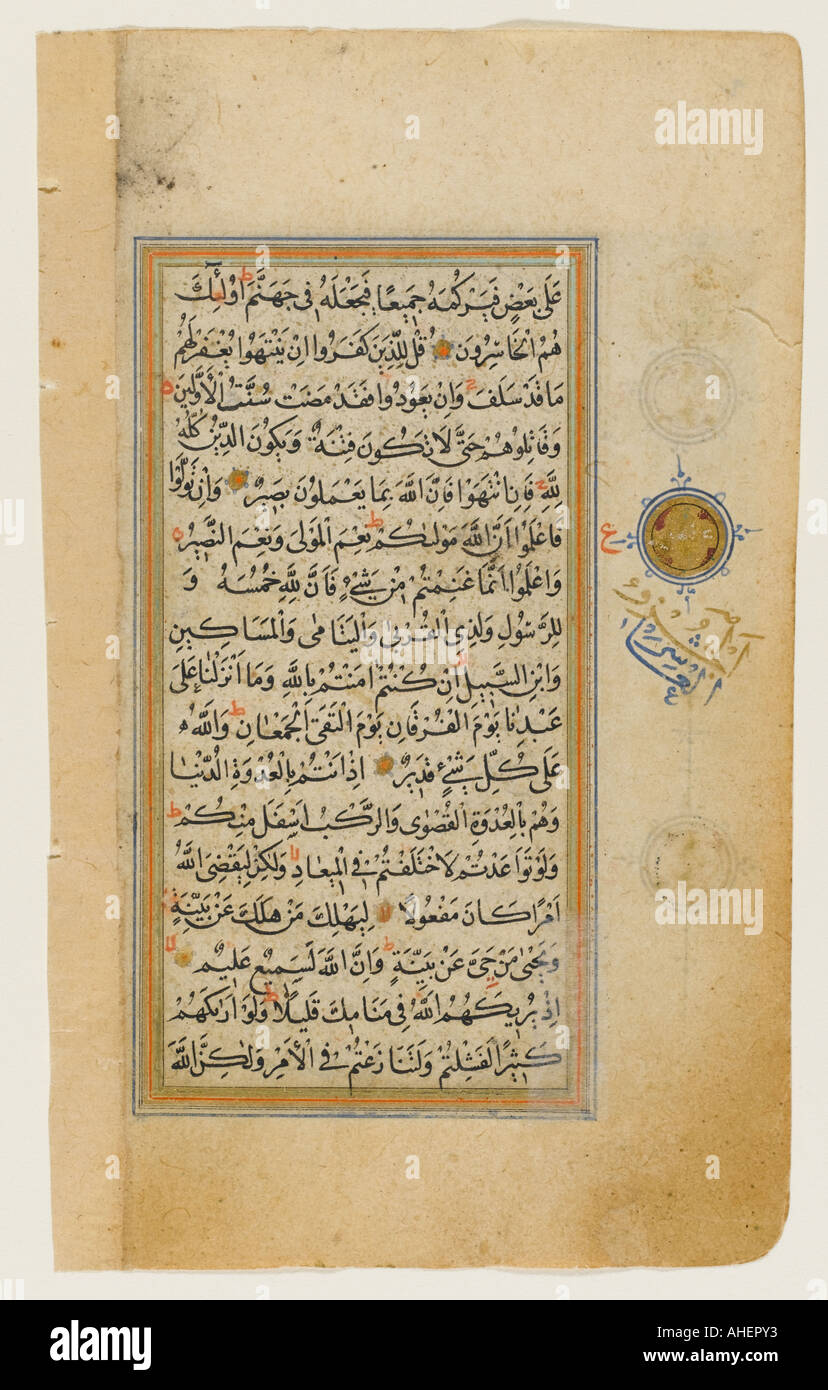 عَلٰى بَعْضٍ فَيَرْكُمَهُ جَمِيعًا فَيَجْعَلَهُ فِي جَهَنَّمَ ط اُولٰٓئِكَ
هُمُ الْخَاسِرُونَ قُلْ لِلَّذِينَ كَفَرُوا اِنْ يَنْتَهُوا يُغْفَرْ لَهُمْ
مَا قَدْ سَلَفَ ج وَاِنْ يَعُودُوا فَقَدْ مَضَتْ سُنَّتُ الْاَوَّلِينَ ه
وَقَاتِلُوهُمْ حَتّٰى لَا تَكُونَ فِتْنَةٌ وَيَكُونَ الدِّينُ كُلُّهُ
لِلّٰهِ ج فَاِنِ انْتَهَوْا فَاِنَّ اللّٰهَ بِمَا يَعْمَلُونَ بَصِيرٌ وَاِنْ تَوَلَّوْا
فَاعْلَمُوا اَنَّ اللّٰهَ مَوْلٰىكُمْ ط نِعْمَ الْمَوْلٰى وَنِعْمَ النَّصِيرُ ه
ع
وَاعْلَمُوا اَنَّمَا غَنِمْتُمْ مِنْ شَيْءٍ فَاَنَّ لِلّٰهِ خُمُسَهُ وَ
لِلرَّسُولِ وَلِذِي الْقُرْبٰى وَالْيَتَامٰى وَالْمَسَاكِينِ
وَابْنِ السَّبِيلِ لا اِنْ كُنْتُمْ اٰمَنْتُمْ بِاللّٰهِ وَمَا اَنْزَلْنَا عَلٰى
عَبْدِنَا يَوْمَ الْفُرْقَانِ يَوْمَ الْتَقَى الْجَمْعَانِ ط وَاللّٰهُ
عَلٰى كُلِّ شَيْءٍ قَدِيرٌ اِذْ اَنْتُمْ بِالْعُدْوَةِ الدُّنْيَا
وَهُمْ بِالْعُدْوَةِ الْقُصْوٰى وَالرَّكْبُ اَسْفَلَ مِنْكُمْ ط
وَلَوْ تَوَاعَدْتُمْ لَاخْتَلَفْتُمْ فِي الْمِيعَادِ لا وَلٰكِنْ لِيَقْضِيَ اللّٰهُ
اَمْرًا كَانَ مَفْعُولًا لا لِيَهْلِكَ مَنْ هَلَكَ عَنْ بَيِّنَةٍ
وَيَحْيٰى مَنْ حَيَّ عَنْ بَيِّنَةٍ ط وَاِنَّ اللّٰهَ لَسَمِيعٌ عَلِيمٌ لا
اِذْ يُرِيكَهُمُ اللّٰهُ فِي مَنَامِكَ قَلِيلًا ط وَلَوْ اَرٰىكَهُمْ
كَثِيرًا لَفَشِلْتُمْ وَلَتَنَازَعْتُمْ فِي الْاَمْرِ وَلٰكِنَّ اللّٰهَ
alamy
a
alamy
Image ID: AHEPY3
www.alamy.com